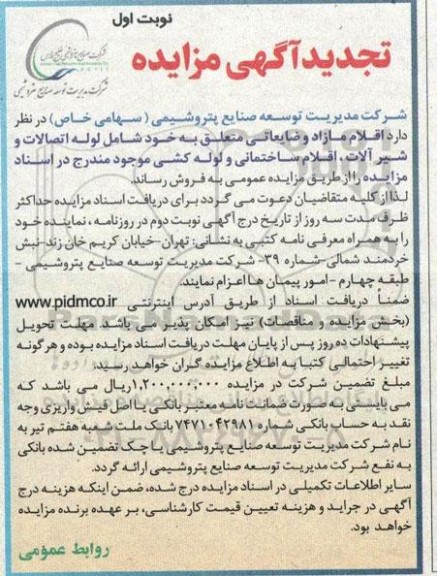 نوبت اول
تجدیدآگهی مزایده
شرکت مدیریت توسعه صنایع پتروشیمی
شرکت مدیریت توسعه صنایع پتروشیمی (سهامی خاص) در نظر
دارد اقلام مازاد و ضایعاتی متعلق به خود شامل لوله اتصالات و
شیر آلات ، اقلام ساختمانی و لوله کشی موجود مندرج در اسناد
مزایده را از طریق مزایده عمومی به فروش رساند.
لذا از کلیه متقاضیان دعوت می گردد برای دریافت اسناد مزایده حداکثر
ظرف مدت سه روز از تاریخ درج آگهی نوبت دوم در روزنامه ، نماینده خود
را به همراه معرفی نامه کتبی به نشانی: تهران-خیابان کریم خان زند-نبش
خردمند شمالی-شماره ۳۹- شرکت مدیریت توسعه صنایع پتروشیمی -
طبقه چهارم - امور پیمان ها اعزام نمایند.
ضمناً دریافت اسناد از طریق آدرس اینترنتی www.pidmco.ir
(بخش مزایده و مناقصات) نیز امکان پذیر می باشد. مهلت تحویل
پیشنهادات ده روز پس از پایان مهلت دریافت اسناد مزایده بوده و هرگونه
تغییر احتمالی کتبا به اطلاع مزایده گران خواهد رسید.
مبلغ تضمین شرکت در مزایده ۱.۲۰۰.۰۰۰.۰۰۰ ریال می باشد که
می بایستی به صورت ضمانت نامه معتبر بانکی یا اصل فیش واریزی وجه
نقد به حساب بانکی شماره ۷۴۷۱۰۴۲۹۸۱ بانک ملت شعبه هفتم تیر به
نام شرکت مدیریت توسعه صنایع پتروشیمی یا چک تضمین شده بانکی
به نفع شرکت مدیریت توسعه صنایع پتروشیمی ارائه گردد.
سایر اطلاعات تکمیلی در اسناد مزایده درج شده، ضمن اینکه هزینه درج
آگهی در جراید و هزینه تعیین قیمت کارشناسی، بر عهده برنده مزایده
خواهد بود.
روابط عمومی